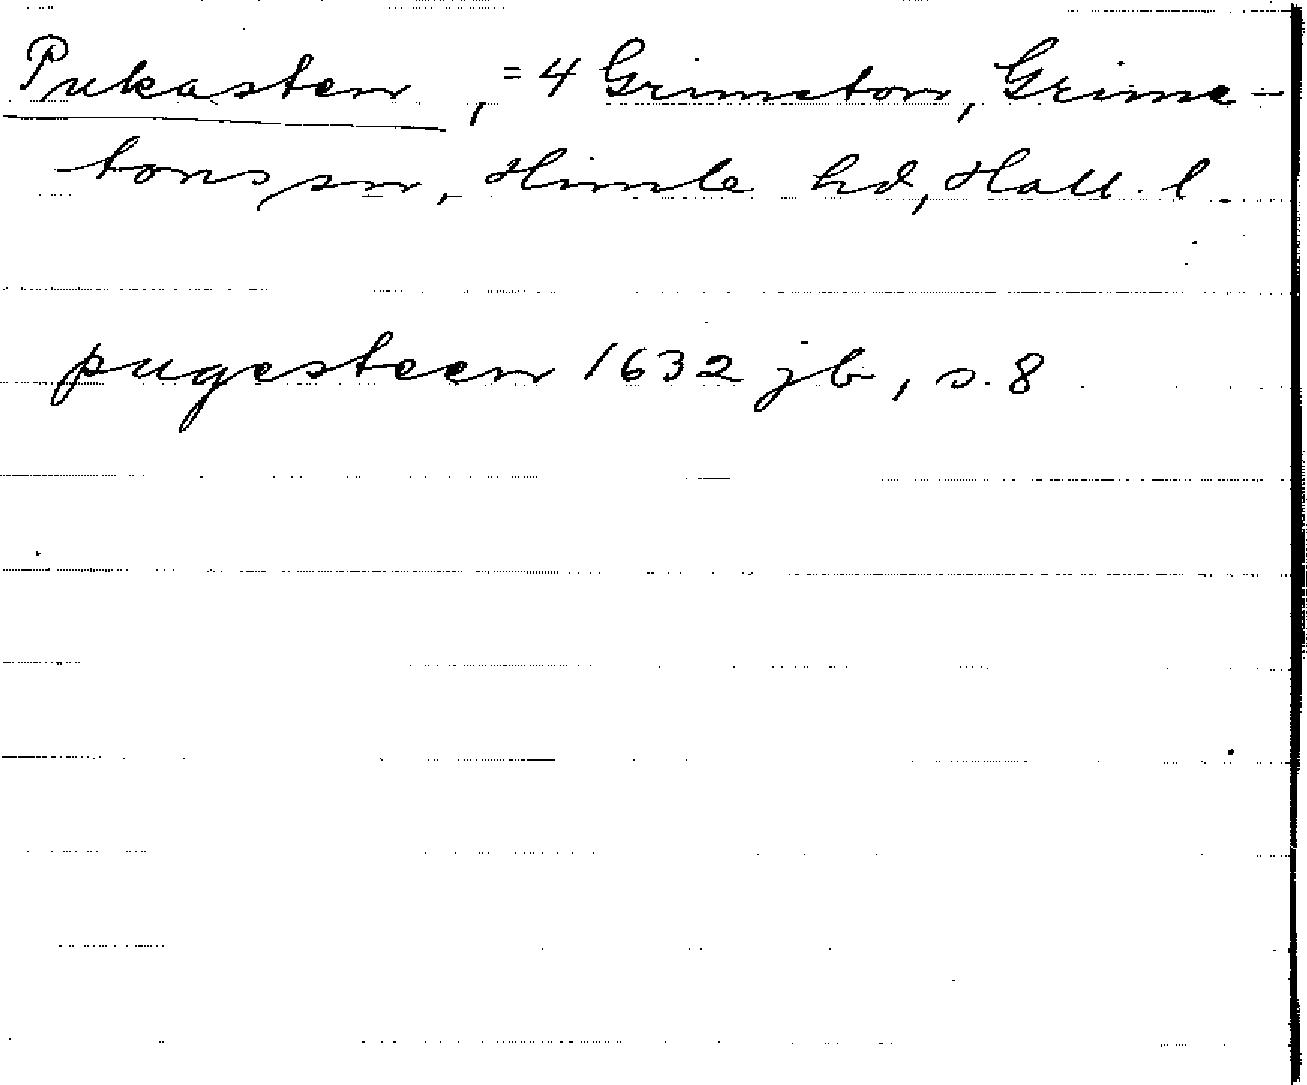 Pukasten, = 4 Grimeton, Grime-
tons sn, Himle hd, Hall. l.
pugesteen 1632 jb, s. 8